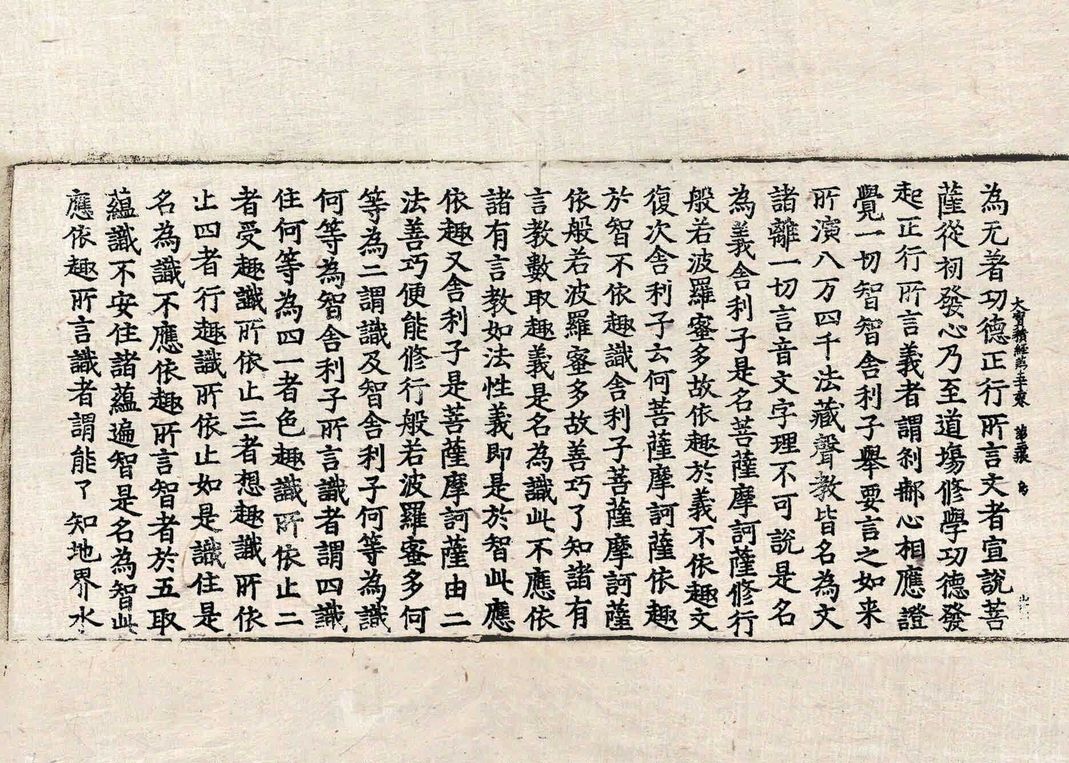 為无著功德正行所言文者宣說菩
薩從初發心乃至道場修學功德發
起正行所言義者謂剎那心相應證
覺一切智智舍利子舉要言之如来
所演八万四千法藏聲教皆名為文
諸離一切言音文字理不可說是名
為義舍利子是名菩薩摩訶薩修行
般若波羅蜜多故依趣於義不依趣文
復次舍利子云何菩薩摩訶薩依趣
於智不依趣識舍利子菩薩摩訶薩
依般若波羅蜜多故善巧了知諸有
言教數取趣義是名為識此不應依
諸有言教如法性義即是於智此應
依趣又舍利子是菩薩摩訶薩由二
法善巧便能修行般若波羅蜜多何
等為二謂識及智舍利子何等為識
何等為智舍利子所言識者謂四識
住何等為四一者色趣識所依止二
者受趣識所依止三者想趣識所依
止四者行趣識所依止如是識住是
名為識不應依趣所言智者於五取
蘊識不安住諸蘊遍智是名為智此
應依趣所言識者謂能了知地界水